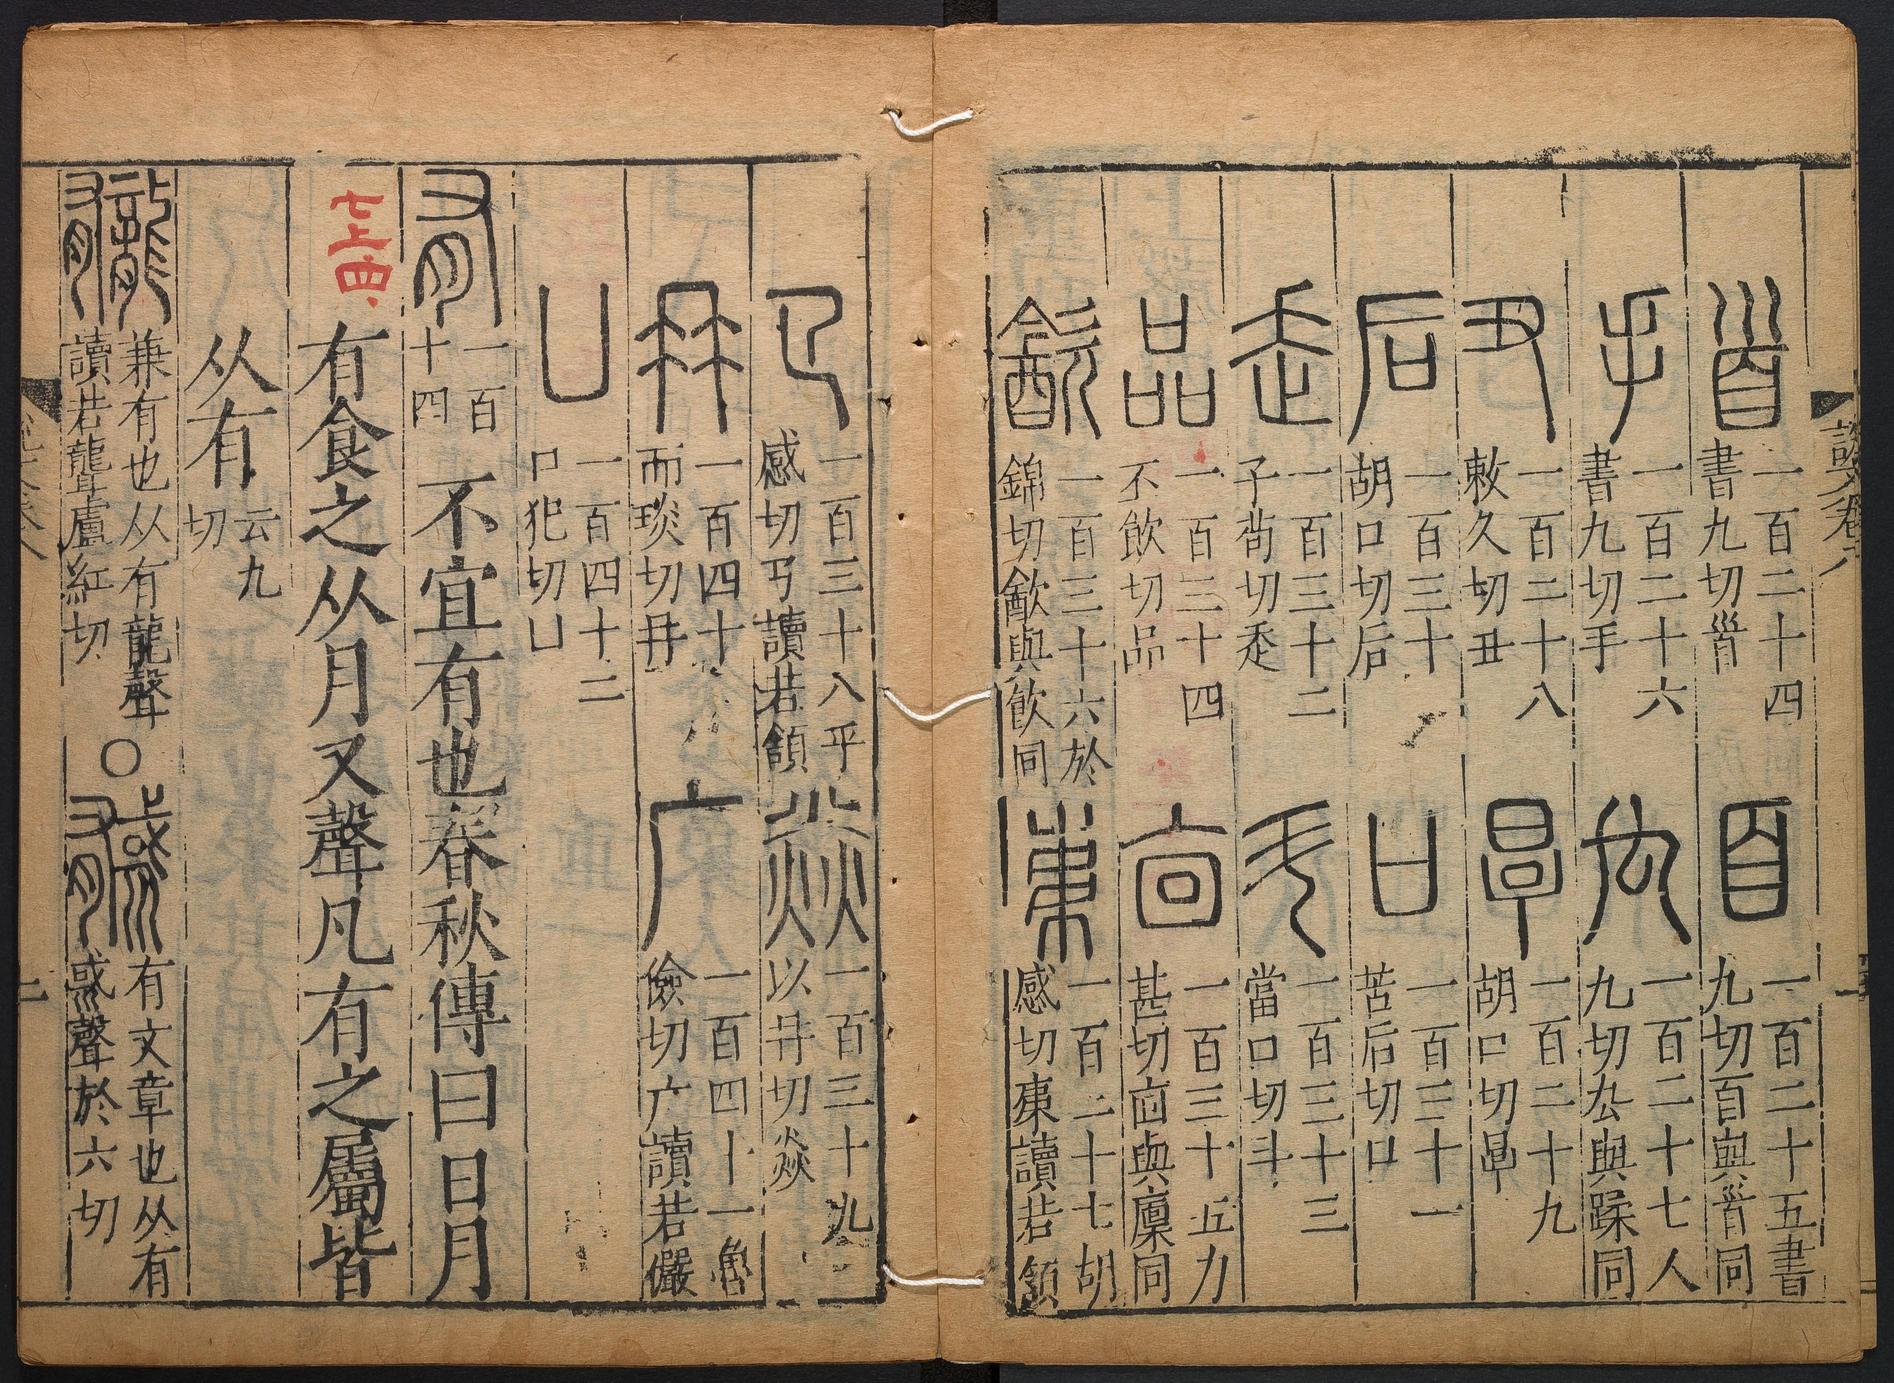 𩠐 一百二十四書九切𩠐
百 一百二十五書九切百與𩠐同
手 一百二十六書九切手
厹 一百二十七人九切厹與蹂同
丑 一百二十八敕久切丑
𣆪 一百二十九胡口切𣆪
后 一百三十胡口切后
口 一百三十一苦后切口
走 一百三十二子苟切走
斗 一百三十三當口切斗
品 一百三十四丕飲切品
㐭 一百三十五力甚切㐭與廩同
㱃 一百三十六於錦切㱃與飲同
㯥 一百三十七胡感切㯥讀若頷
𢎘 一百三十八乎感切𢎘讀若頷
焱 一百三十九以冉切焱
冄 一百四十而琰切冄
广 一百四十一魚儉切广讀若儼
凵 一百四十二口犯切凵
有 一百十四 不宜有也春秋傳曰日月
七上 四
有食之从月又聲凡有之屬皆
从有 云九切
𪚠 兼有也从有龍聲讀若聾盧紅切〇𢒰 有文章也从有惑聲於六切